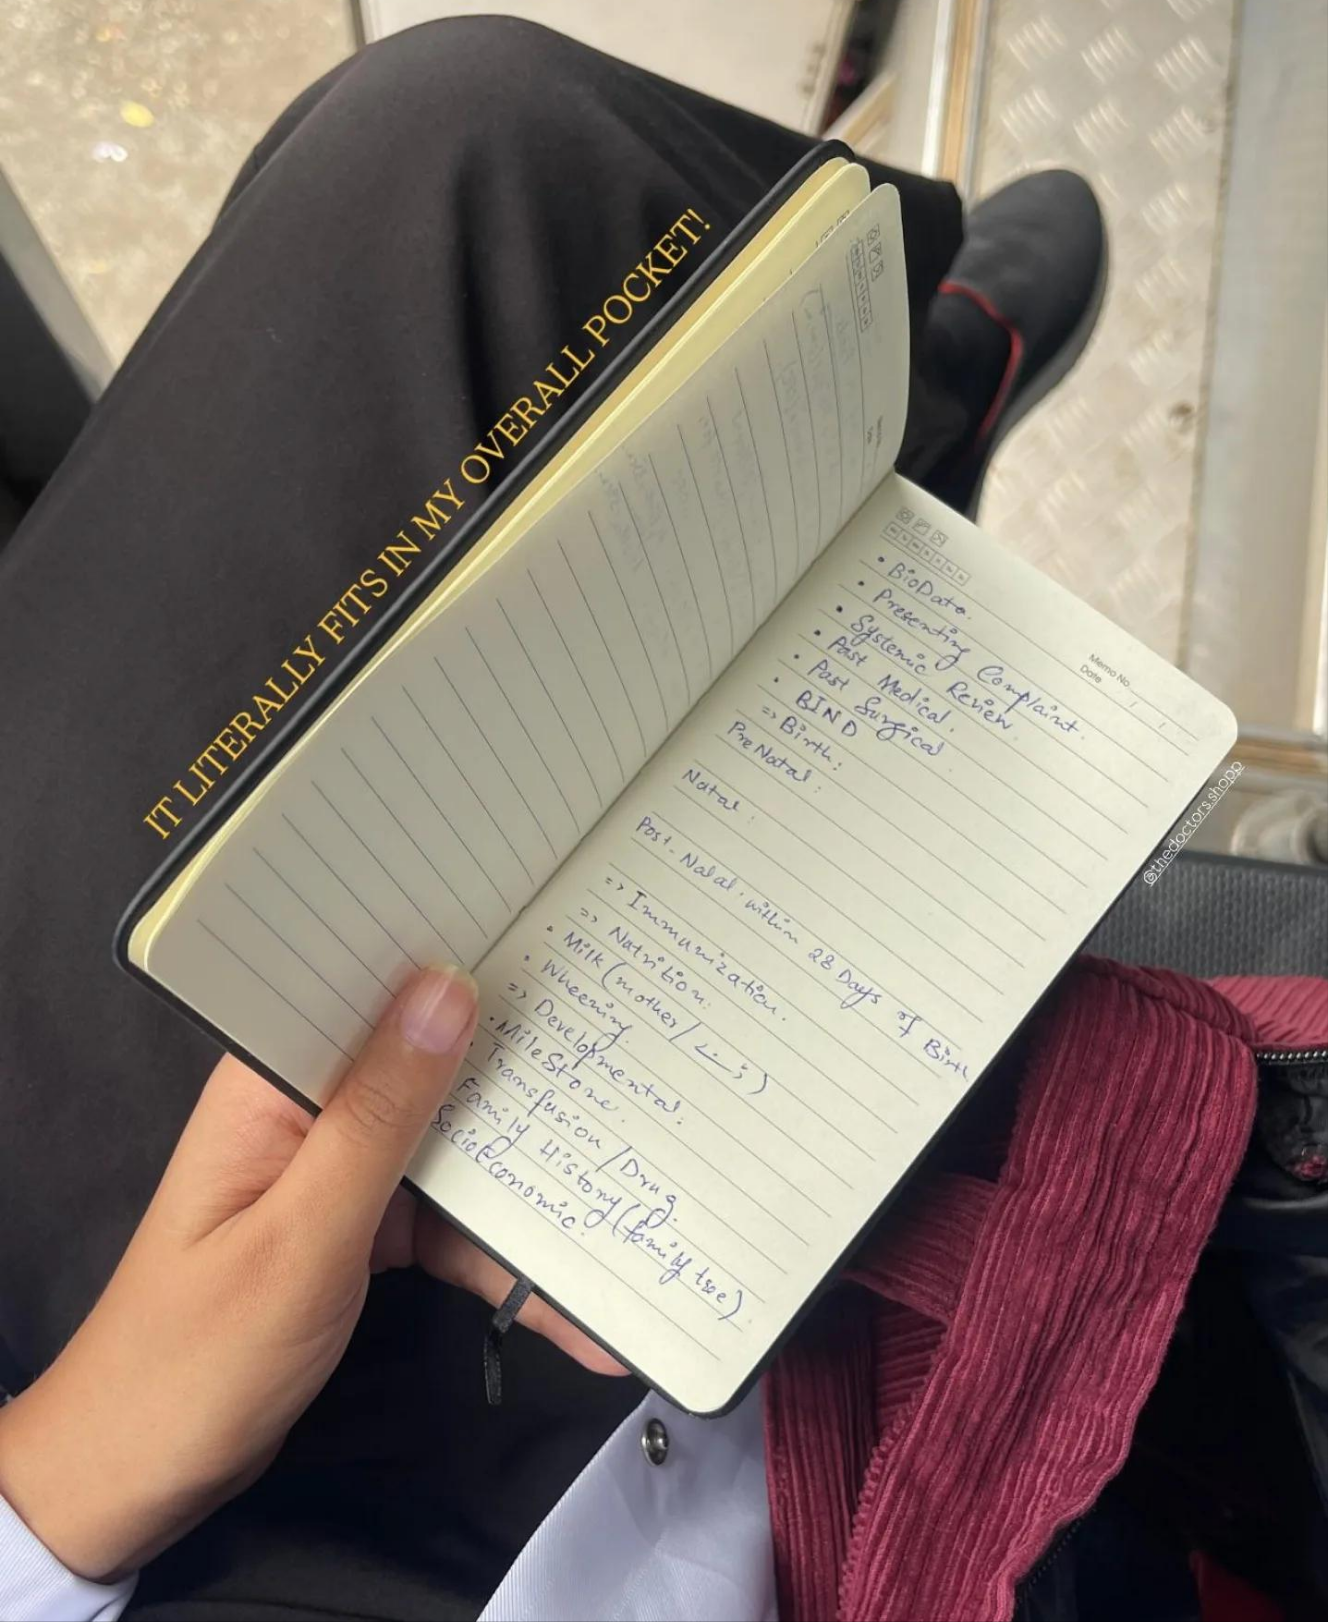 IT LITERALLY FITS IN MY OVERALL POCKET!
Memo No
Date / /
• BioData.
• Presenting Complaint.
• Systemic Review.
• Past Medical.
• Past Surgical
• BIND
=> Birth:
PreNatal:
Natal:
Post-Natal. within 28 Days of Birth
=> Immunization.
=> Natrition:
• Milk (mother/
• Wheening.
=> Developmental:
• MileStone.
• Transfusion / Drug.
Family History (family tree).
SocioEconomic:
@thedoctors.shopp